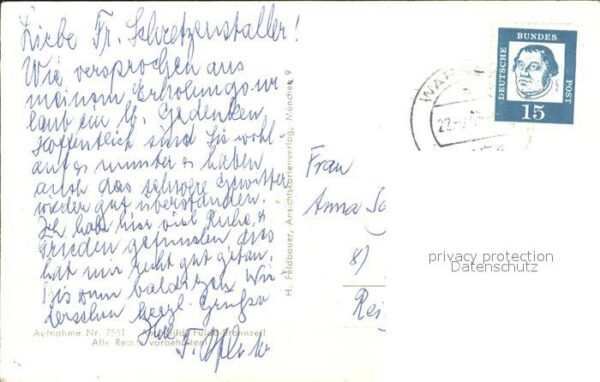 Liebe Fr. Schretzenstaller!
Wie versprochen aus
meinem Erholungsur
laub ein lb. Gedenken.
Hoffentlich sind Sie wohl-
auf u. munter u. haben
auch das schwere Gewitter
wieder gut überstanden.
Ich habe hier viel Ruhe u.
Frieden gefunden das
hat mir recht gut getan.
Bis zum baldigen Wie
dersehn herzl. Grüße
Ihre
Aufnahme Nr. 7551
Alle Rechte vorbehalten
H. Feldbauer, Ansichtskartenverlag, München 9
DEUTSCHE BUNDES POST
15
22-
Frau
Anna
8)
Rei
privacy protection
Datenschutz